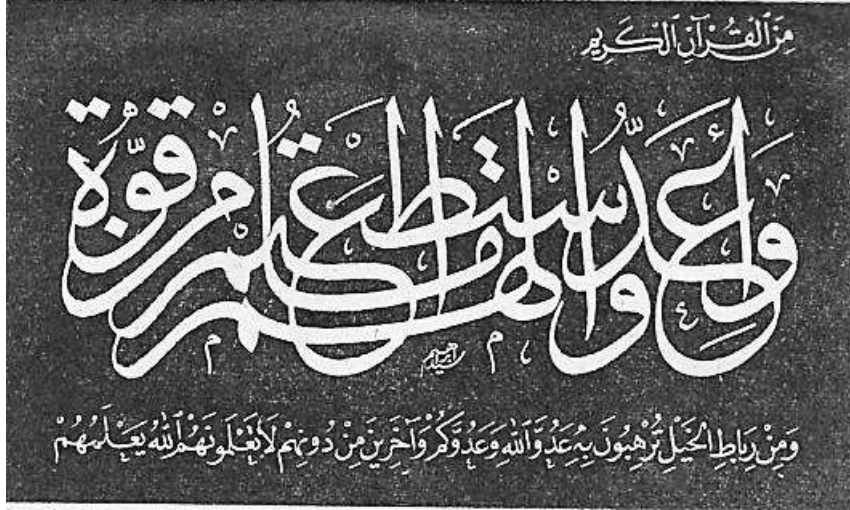 مِنَ ٱلْقُرْآنِ ٱلْكَرِيمِ
وَأَعِدُّوا لَهُم مَّا ٱسْتَطَعْتُم مِّن قُوَّةٍ
وَمِنْ رِبَاطِ الْخَيْلِ تُرْهِبُونَ بِهِ عَدُوَّ ٱللَّهِ وَعَدُوَّكُمْ وَآخَرِينَ مِنْ دُونِهِمْ لَا تَعْلَمُونَهُمُ ٱللَّهُ يَعْلَمُهُمْ